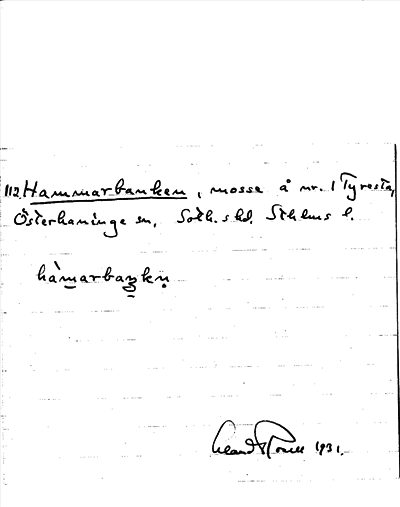 112. Hammarbanken, mosse å nr. 1 Tyresta,
Österhaninge sn, Soth. shd. Sthlms l.
hàmarbaŋkn̥
1931.